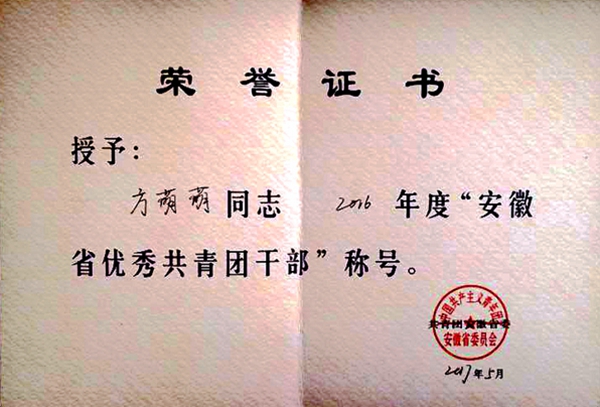 荣誉证书
授予：
方萌萌同志 2016 年度“安徽
省优秀共青团干部”称号。
中国共产主义青年团
共青团安徽省委
安徽省委员会
2017年5月